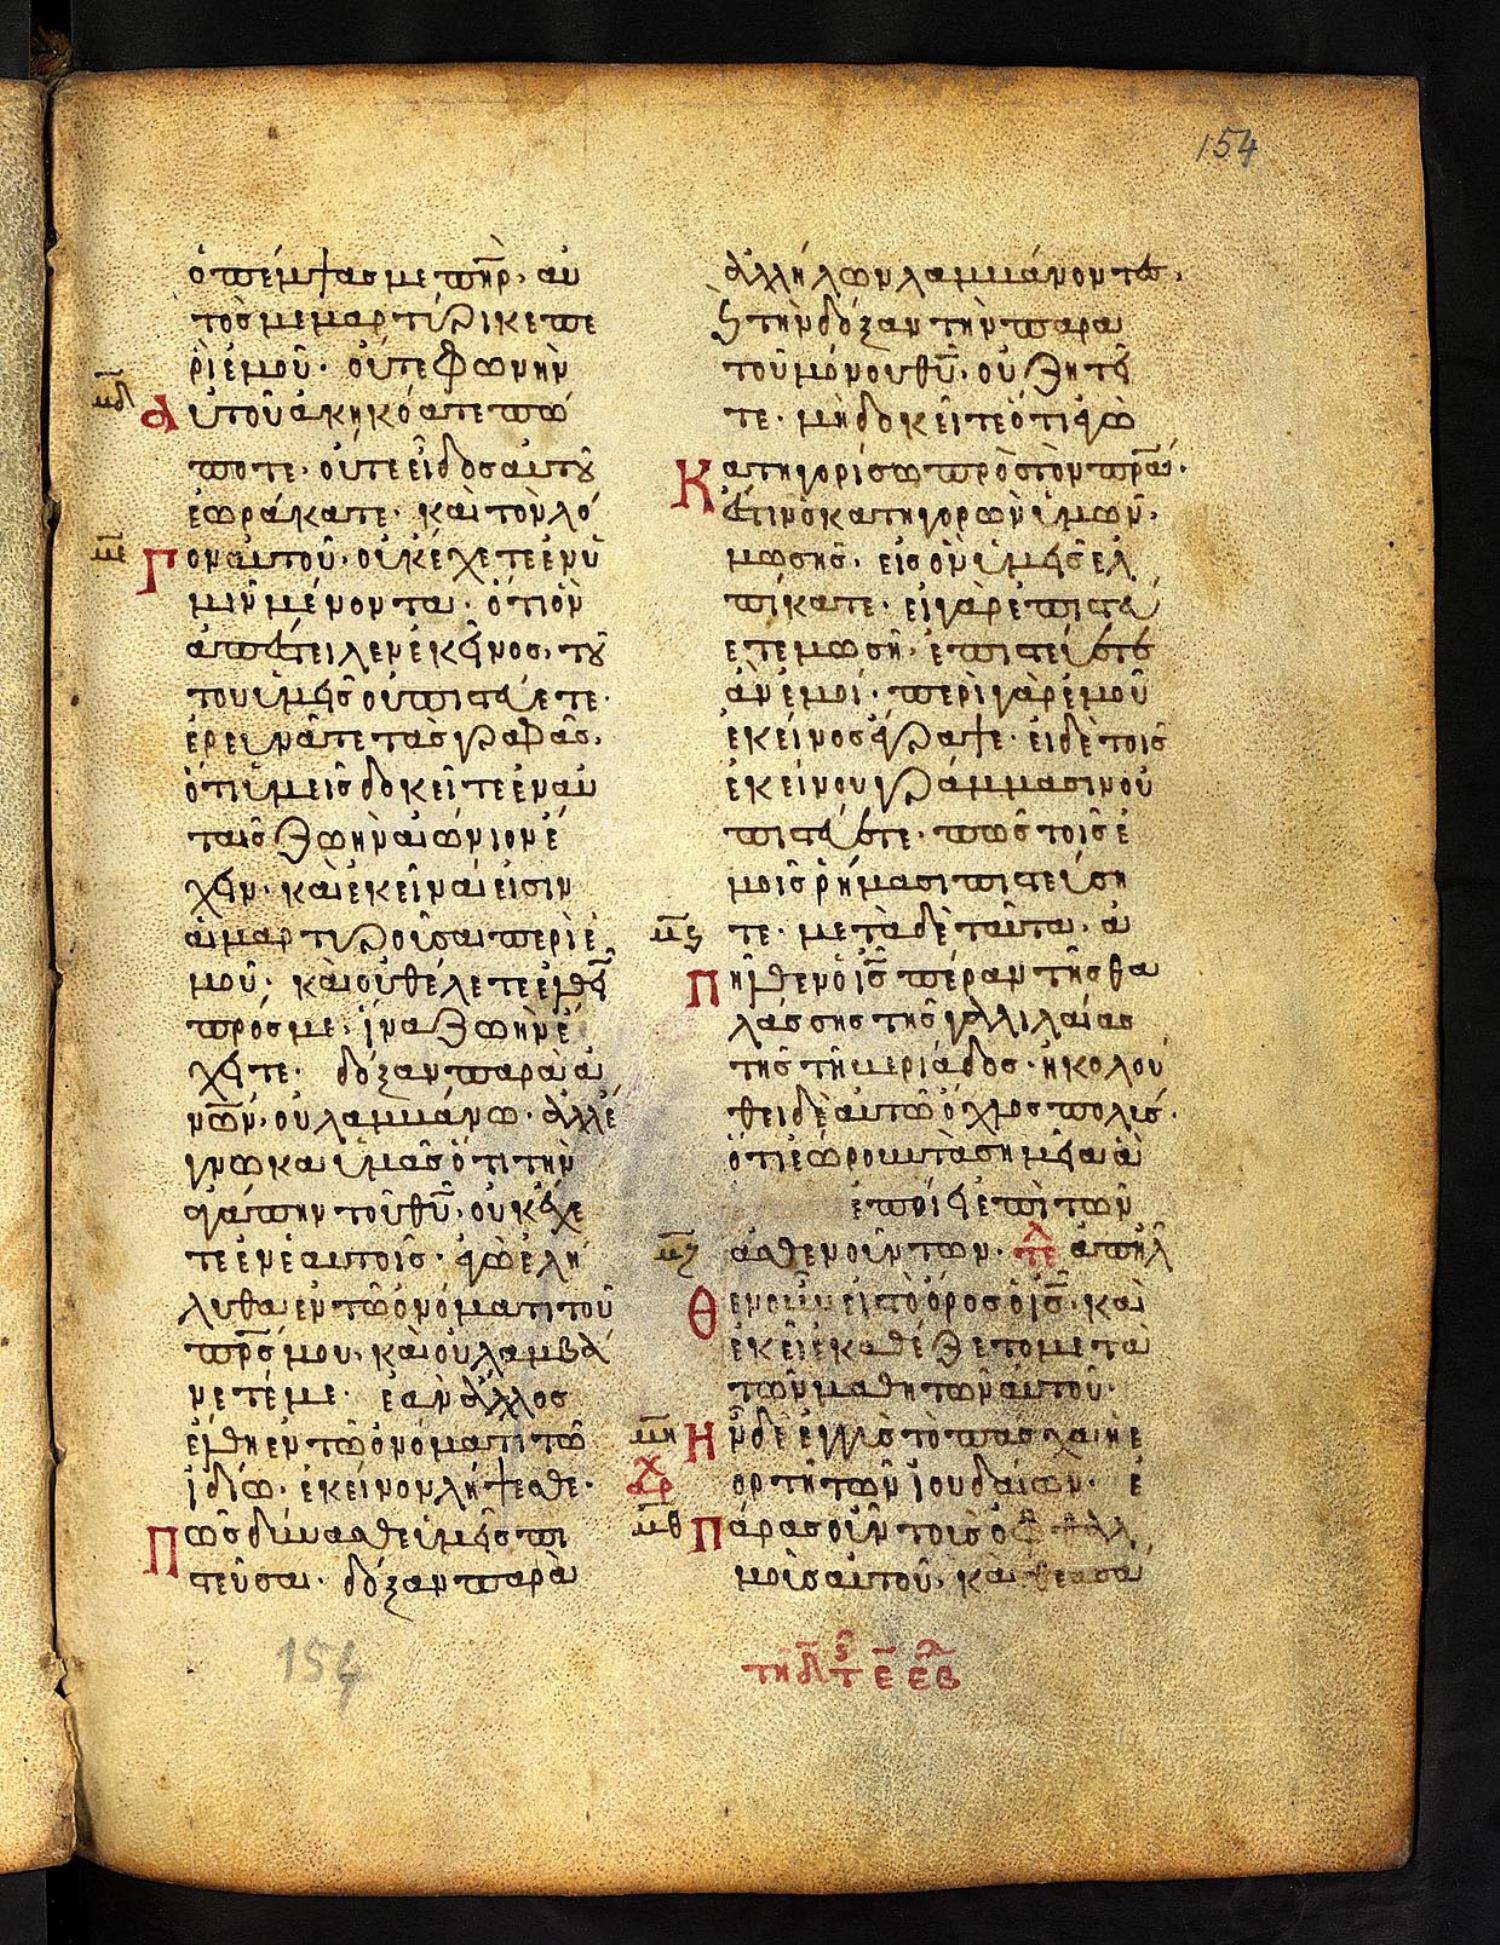 154
ὁ πέμψας με πηρ· αυ
τὸς μεμαρτύρικε πε
ρὶ ἐμοῦ· οὔτε φωνὴν
μδ
αὐτοῦ ἀκηκόατε πώ
ποτε· οὔτε εἶδος αυτȣ
ἑωράκατε· καὶ τὸν λό
με
Γον αυτοῦ· οὐκ ἔχετε ἐν ὑ
μῖν μένοντα· ὅτι ὃν
ἀπέστειλεν ἐκεῖνος, τȣ
τον ὑμεῖς οὐ πιστεύετε·
ἐρευνᾶτε τὰς γραφὰς,
ὅτι ὑμεῖς δοκεῖτε ἐν αυ
ταῖς ζωὴν αἰώνιον ἔ
χειν· καὶ ἐκεῖναί εἰσιν
αἱ μαρτυροῦσαι περὶ ἐ
μοῦ· καὶ οὐ θέλετε ἐλθεῖ
πρός με, ἵνα ζωὴν ἔ
χητε· δόξαν παρὰ α
νων, οὐ λαμμάνω· ἀλλ ἔ
γνωκα ὑμᾶς ὅτι τὴν
ἀγάπην τοῦ θυ, οὐκ ἔχε
τε ἐν ἑαυτοῖς· ἐγὼ ἐλή
λυθα ἐν τῶ ὀνόματι τοῦ
πρς μου, καὶ οὐ λαμβά
νετέ με· ἐὰν ἄλλος
ἔλθη εν τῶ ὀνόματι τῶ
ἰδίω· ἐκεῖνον λήψεσθε·
Πῶς δύνασθε ὑμεῖς πι
τεῦσαι· δόξαν παρὰ
ἀλλήλων λαμμάνοντες,
ϛ τὴν δόξαν τὴν παρα
τοῦ μόνου θυ, οὐ ζητεῖ
τε· μὴ δοκεῖτε ὅτι ἐγὼ
Κατηγορίσω πρὸς τὸν πρα·
ἔστιν ὁ κατηγορῶν ὑμῶν·
μωσης· εἰς ὃν ὑμεῖς ἐλ
πίκατε· εἰ γὰρ ἐπιστεύ
ετε μωσῆ· ἐπιστεύετε
ἂν ἐμοί· περὶ γὰρ ἐμοῦ
ἐκεῖνος ἔγραψε· εἰ δὲ τοῖς
ἐκείνου γράμμασιν οὐ
πιστεύετε· πῶς τοῖς ἐ
μοῖς ῥήμασι πιστεύση
μϛ τε· μετὰ δὲ ταῦτα· ἀ
Πῆλθεν ὁ ις πέραν τῆς θα
λάσσης τῆς γαλιλαίας
τῆς τιμεριάδος· ἠκολού
θει δὲ αυτῶ ὄχλος πολις·
ὅτι ἑώρουν τὰ σημεῖα ἃ
ἐποίει ἐπὶ τῶν
μζ ἀσθενούντων· τε ἀπῆλ
Θεν οὖν εἰς τὸ ὄρος ὁ ις· καὶ
ἐκεῖ ἐκαθέζετο μετὰ
τῶν μαθητῶν αυτοῦ·
μη Ην δὲ ἐγγὺς τὸ πάσχα ἡ ἑ
αρχ ορτὴ τῶν ἰουδαίων· ἐ
μθ Πάρας οὖν τοῖς ὀφθαλ
μοῖς αυτοῦ, καὶ θεασά
154